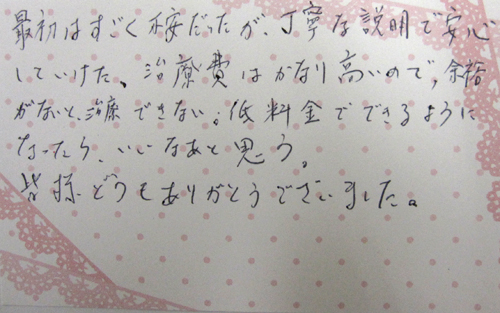 最初はすごく不安だったが、丁寧な説明で安心
していけた、治療費はかなり高いので、余裕
がないと、治療できない。低料金でできるように
なったら、いいなあと思う。
皆様どうもありがとうございました。